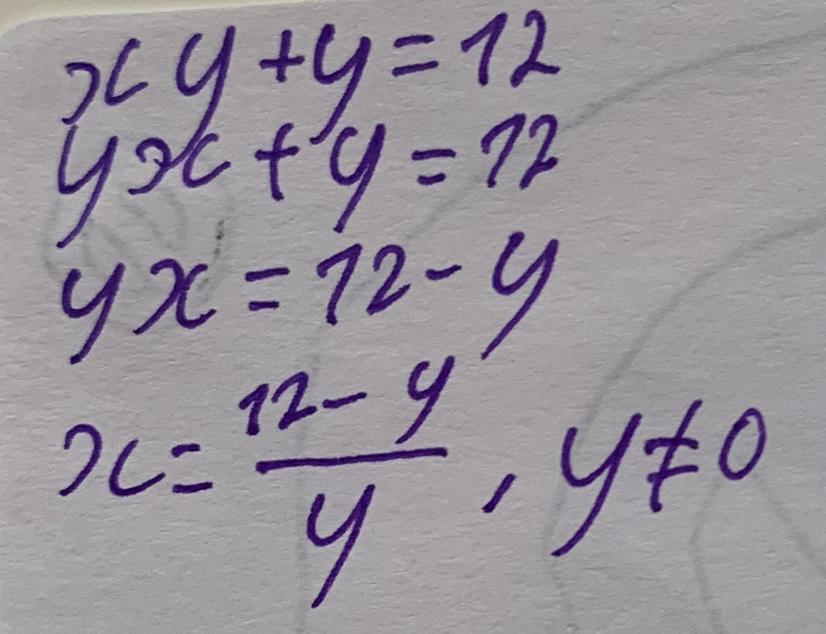 xy+y=12
yx+y=12
yx=12-y
x=\frac{12-y}{y}, y≠0